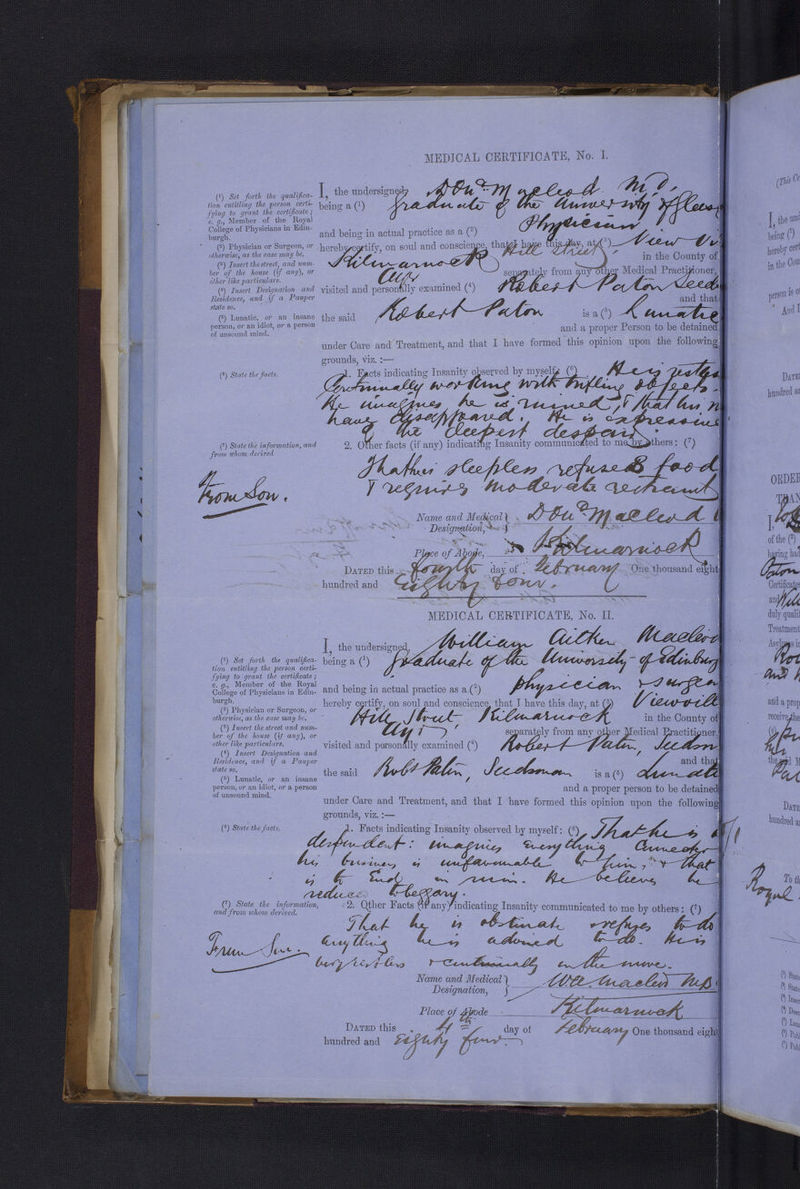 MEDICAL CERTIFICATE, No. I.
(¹) Set forth the qualifica-
tion entitling the person certi-
fying to grant the certificate;
e. g., Member of the Royal
College of Physicians in Edin-
burgh.
(²) Physician or Surgeon, or
otherwise, as the case may be.
(³) Insert the street, and num-
ber of the house (if any), or
other like particulars.
(⁴) Insert Designation and
Residence, and if a Pauper
state so.
(⁵) Lunatic, or an insane
person, or an idiot, or a person
of unsound mind.
I, the undersigned, Dond. Macleod M.D.
being a (¹) Graduate of the University of Glasg
and being in actual practice as a (²) Physician
hereby certify, on soul and conscience, that I have this day, at (³) View Vi
Hill Street
Kilmarnock in the County of
Ayr separately from any other Medical Practitioner,
visited and personally examined (⁴) Robert Paton Seeds
and that
the said Robert Paton is a (⁵) Lunatic
and a proper Person to be detained
under Care and Treatment, and that I have formed this opinion upon the following
grounds, viz. :—
(⁶) State the facts.
1. Facts indicating Insanity observed by myself: (⁶) He is restless
Continually working with trifling objects.
He imagines he is ruined, & that his m
have disappeared. He is expressive
of the deepest despair
(⁷) State the information, and
from whom derived.
2. Other facts (if any) indicating Insanity communicated to me by others: (⁷)
From Son.
That he is sleepless, refuses food
& requires moderate restraint
Name and Medical Designation, Dond. Macleod
Place of Abode, Kilmarnock
DATED this fourth day of February One thousand eight
hundred and Eighty four.
MEDICAL CERTIFICATE, No. II.
(¹) Set forth the qualifica-
tion entitling the person certi-
fying to grant the certificate;
e. g., Member of the Royal
College of Physicians in Edin-
burgh.
(²) Physician or Surgeon, or
otherwise, as the case may be.
(³) Insert the street and num-
ber of the house (if any), or
other like particulars.
(⁴) Insert Designation and
Residence, and if a Pauper
state so.
(⁵) Lunatic, or an insane
person, or an idiot, or a person
of unsound mind.
I, the undersigned William Aitken Macleod
being a (¹) Graduate of the University of Edinburg
and being in actual practice as a (²) Physician & Surgeon
hereby certify, on soul and conscience, that I have this day, at (³) Viewvill
Hill Street, Kilmarnock in the County of
Ayr separately from any other Medical Practitioner,
visited and personally examined (⁴) Robert Paton, Seedsm
and that
the said Robt Paton, Seedsman is a (⁵) Lunatic
and a proper person to be detained
under Care and Treatment, and that I have formed this opinion upon the following
grounds, viz. :—
(⁶) State the facts.
1. Facts indicating Insanity observed by myself: (⁶) That he is
despondent: imagines everything connected
his business is unfavourable to him, & that
is to end in ruin. He believes he
reduced to beggary.
(⁷) State the information,
and from whom derived.
2. Other Facts (if any) indicating Insanity communicated to me by others: (⁷)
From Son.
That he is obstinate & refuses to do
anything he is advised to do. He is
very restless & continually on the move.
Name and Medical Designation, Wm. Macleod M.B.
Place of Abode Kilmarnock
DATED this 4th day of February One thousand eight
hundred and Eighty four.
I, the und
being (¹)
hereby cert
in the Cou
person is o
And I
DATE
hundred an
ORDER
of the (²)
having had
Certificates
duly quali
Treatment
Asylums in
and a prop
receive the
DATE
hundred an
To th
Royal